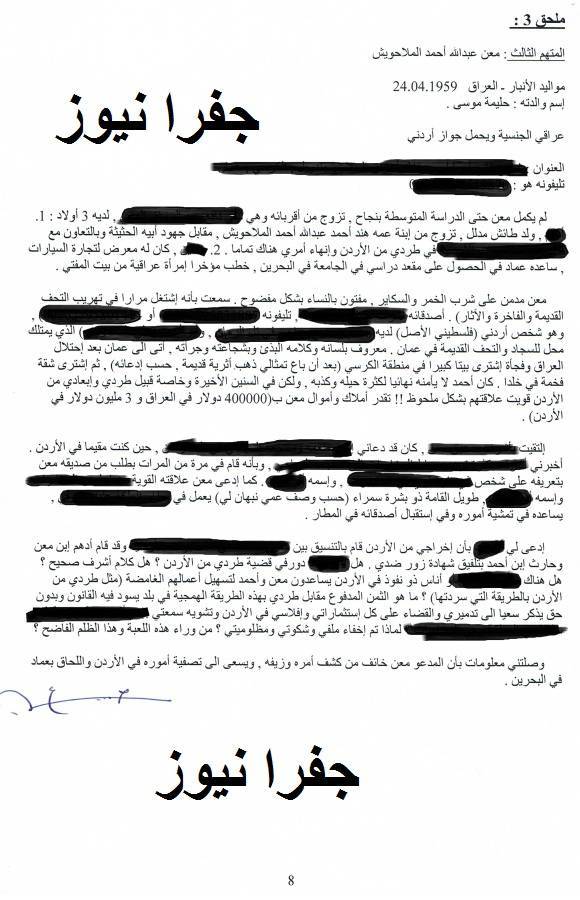 ملحق 3 :
المتهم الثالث : معن عبدالله أحمد الملاحويش
مواليد الأنبار ـ العراق 24.04.1959
إسم والدته : حليمة موسى .
جفرا نيوز
عراقي الجنسية ويحمل جواز أردني
العنوان
تليفونه هو :
لم يكمل معن حتى الدراسة المتوسطة بنجاح , تزوج من أقربائه وهي , لديه 3 أولاد : 1.
, ولد طائش مدلل , تزوج من إبنة عمه هند أحمد عبدالله أحمد الملاحويش , مقابل جهود أبيه الحثيثة وبالتعاون مع
في طردي من الأردن وإنهاء أمري هناك تماما . 2. , كان له معرض لتجارة السيارات
, ساعده عماد في الحصول على مقعد دراسي في الجامعة في البحرين , خطب مؤخرا إمرأة عراقية من بيت المفتي .
معن مدمن على شرب الخمر والسكاير , مفتون بالنساء بشكل مفضوح . سمعت بأنه إشتغل مرارا في تهريب التحف
القديمة والفاخرة والآثار) . أصدقائه , تليفونه أو
وهو شخص أردني (فلسطيني الأصل) لديه , و الذي يمتلك
محل للسجاد والتحف القديمة في عمان . معروف بلسانه وكلامه البذئ وبشجاعته وجرأته , أتى الى عمان بعد إحتلال
العراق وفجأة إشترى بيتا كبيرا في منطقة الكرسي (بعد أن باع تمثالي ذهب أثرية قديمة , حسب إدعائه) , ثم إشترى شقة
فخمة في خلدا . كان أحمد لا يأمنه نهائيا لكثرة حيله وكذبه , ولكن في السنين الأخيرة وخاصة قبيل طردي وإبعادي من
الأردن قويت علاقتهم بشكل ملحوظ !! تقدر أملاك وأموال معن ب(400000 دولار في العراق و 3 مليون دولار في
الأردن) .
إلتقيت , كان قد دعاني , حين كنت مقيما في الأردن .
أخبرني , وبأنه قام في مرة من المرات بطلب من صديقه معن
بتعريفه على شخص , وإسمه . كما إدعى معن علاقته القوية
وإسمه , طويل القامة ذو بشرة سمراء (حسب وصف عمي نبهان لي) يعمل في ,
يساعده في تمشية أموره وفي إستقبال أصدقائه في المطار .
إدعى لي بأن إخراجي من الأردن قام بالتنسيق بين وقد قام أدهم إبن معن
وحارث إبن أحمد بتلفيق شهادة زور ضدي . هل دور في قضية طردي من الأردن ؟ هل كلام أشرف صحيح ؟
هل هناك أو أناس ذو نفوذ في الأردن يساعدون معن وأحمد لتسهيل أعمالهم الغامضة (مثل طردي من
الأردن بالطريقة التي سردتها) ؟ ما هو الثمن المدفوع مقابل طردي بهذه الطريقة الهمجية في بلد يسود فيه القانون وبدون
حق يذكر سعيا الى تدميري والقضاء على كل إستثماراتي وإفلاسي في الأردن وتشويه سمعتي
لماذا تم إخفاء ملفي وشكوتي ومظلوميتي ؟ من وراء هذه اللعبة وهذا الظلم الفاضح ؟
وصلتني معلومات بأن المدعو معن خائف من كشف أمره وزيفه , ويسعى الى تصفية أموره في الأردن واللحاق بعماد
في البحرين .
جفرا نيوز
8